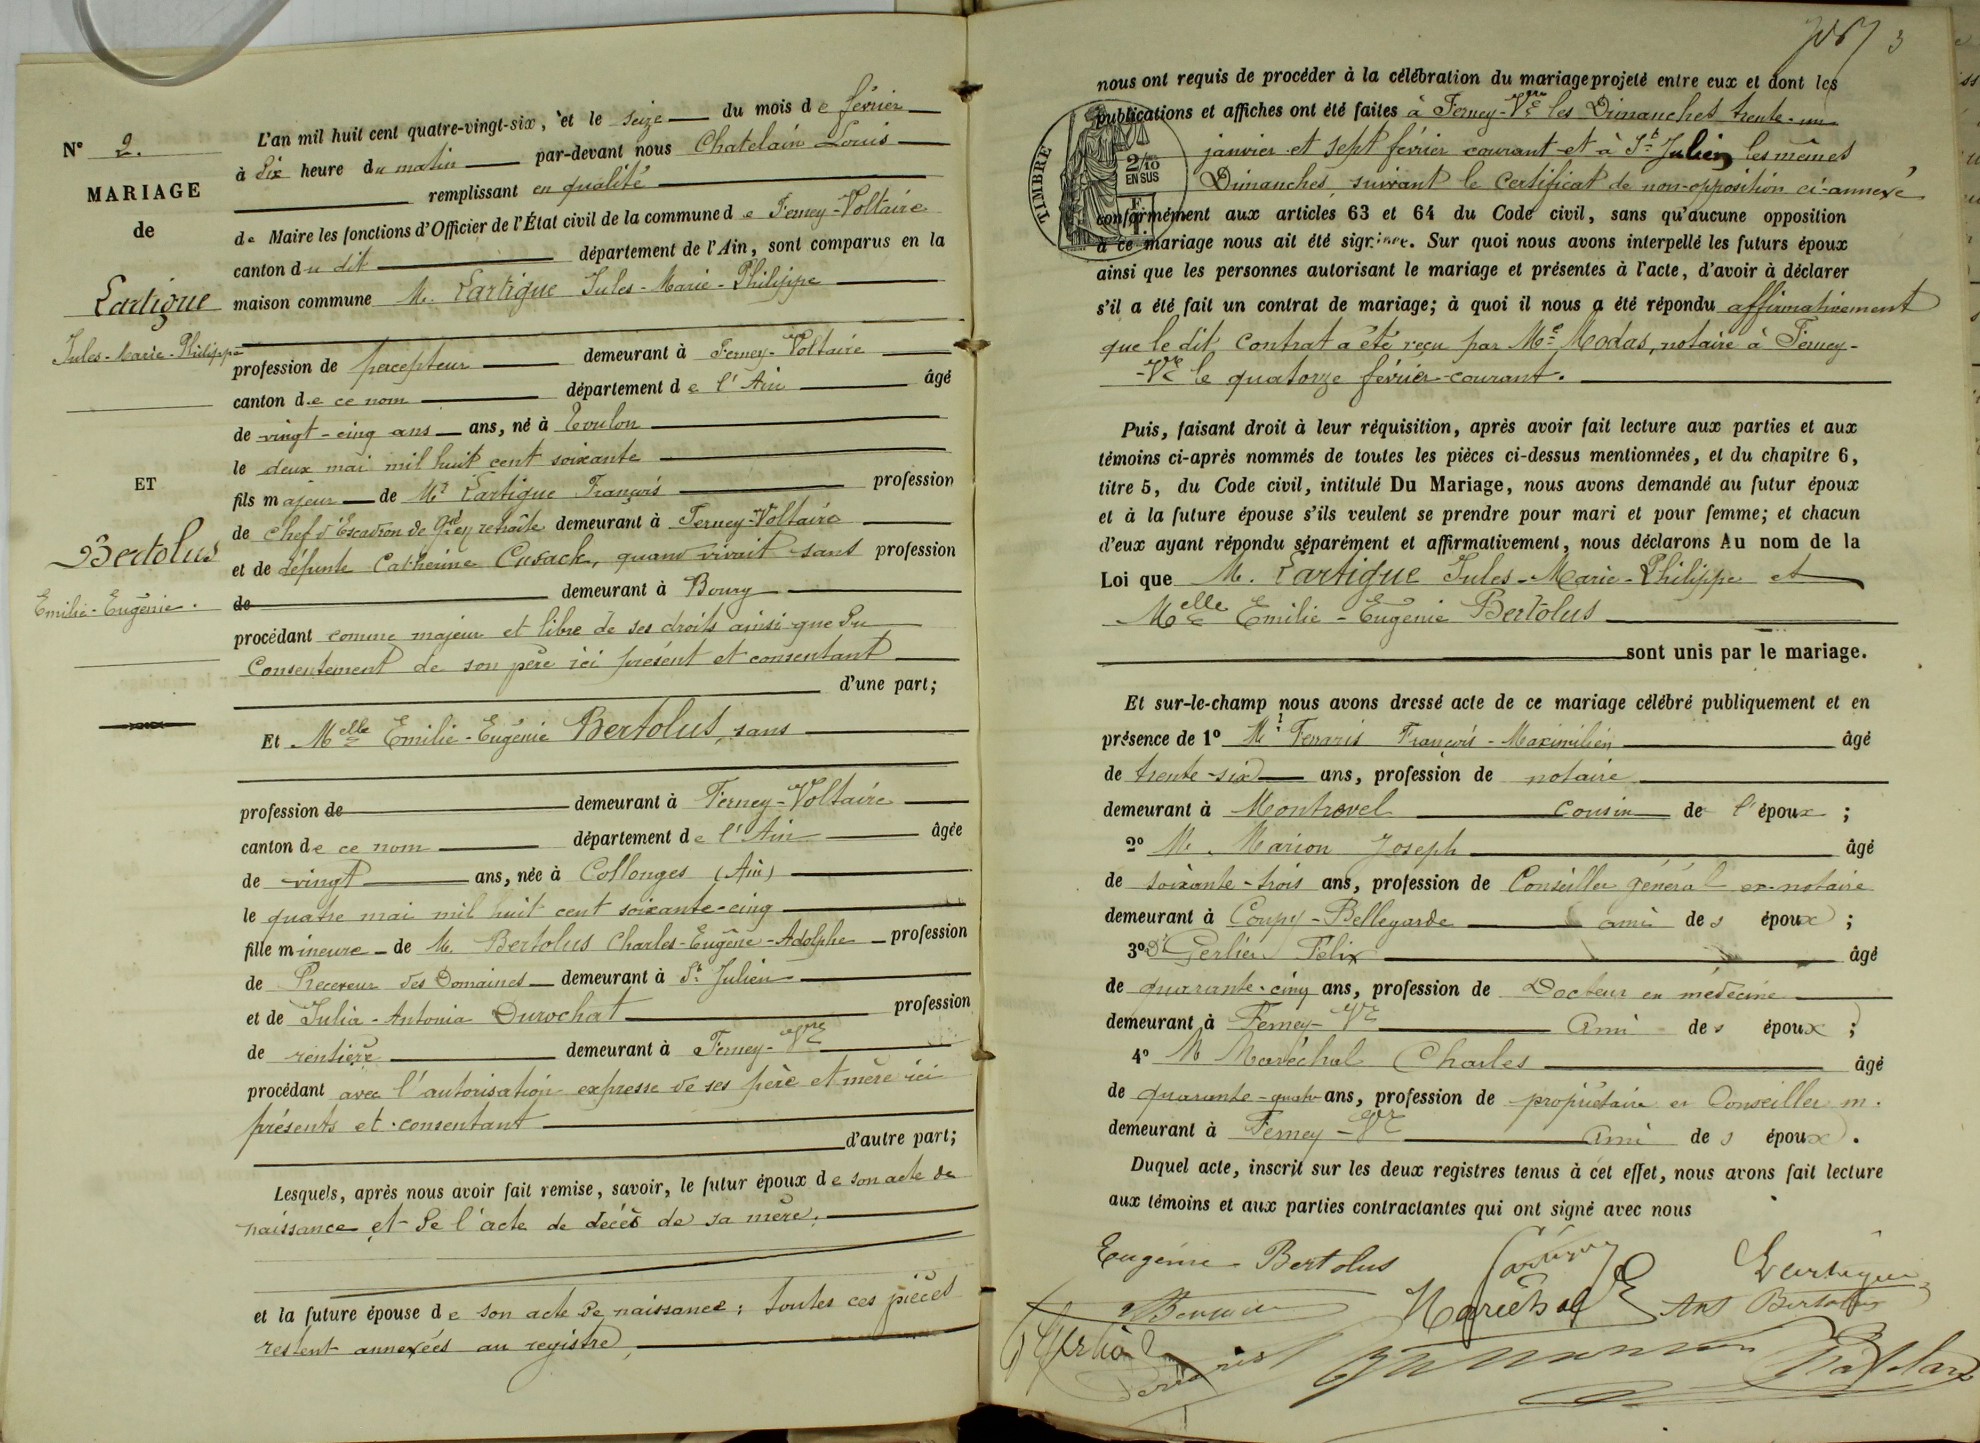 N° 2.
MARIAGE
de
Lartigue
Jules-Marie-Philippe
ET
Bertolus
Emilie-Eugénie.
L'an mil huit cent quatre-vingt-six, et le seize du mois de février
à dix heure du matin par-devant nous Chatelain Louis
remplissant en qualité
de Maire les fonctions d'Officier de l'État civil de la commune de Ferney-Voltaire
canton du dit département de l'Ain, sont comparus en la
maison commune M. Lartigue Jules-Marie-Philippe
profession de percepteur demeurant à Ferney-Voltaire
canton de ce nom département de l'Ain âgé
de vingt-cinq ans ans, né à Toulon
le deux mai mil huit cent soixante
fils majeur de Mr Lartigue François profession
de chef d'Escadron de Gie en retraite demeurant à Ferney-Voltaire
et de défunte Catherine Cusack, quand vivait sans profession
de demeurant à Bourg
procédant comme majeur et libre de ses droits ainsi que du
Consentement de son père ici présent et consentant
d'une part;
Et Melle Emilie-Eugénie Bertolus, sans
profession de demeurant à Ferney-Voltaire
canton de ce nom département de l'Ain âgée
de vingt ans, née à Collonges (Ain)
le quatre mai mil huit cent soixante-cinq
fille mineure de M. Bertolus Charles-Eugène-Adolphe profession
de Receveur des Domaines demeurant à St Julien
et de Julia-Antonia Durochat profession
de rentière demeurant à Ferney-Vre
procédant avec l'autorisation expresse de ses père et mère ici
présents et consentant
d'autre part;
Lesquels, après nous avoir fait remise, savoir, le futur époux de son acte de
naissance et de l'acte de décès de sa mère.
et la future épouse de son acte de naissance; toutes ces pièces
restent annexées au registre
3
nous ont requis de procéder à la célébration du mariage projeté entre eux et dont les
publications et affiches ont été faites à Ferney-Vre les Dimanches trente-un
janvier et sept février courant et à St Julien les mêmes
Dimanches, suivant le certificat de non-opposition ci-annexé
TIMBRE
2/10
EN SUS
conformément aux articles 63 et 64 du Code civil, sans qu'aucune opposition
à ce mariage nous ait été signifiée. Sur quoi nous avons interpellé les futurs époux
ainsi que les personnes autorisant le mariage et présentes à l'acte, d'avoir à déclarer
s'il a été fait un contrat de mariage; à quoi il nous a été répondu affirmativement
que le dit Contrat a été reçu par Me Modas, notaire à Ferney-
-Vre le quatorze février courant.
Puis, faisant droit à leur réquisition, après avoir fait lecture aux parties et aux
témoins ci-après nommés de toutes les pièces ci-dessus mentionnées, et du chapitre 6,
titre 5, du Code civil, intitulé Du Mariage, nous avons demandé au futur époux
et à la future épouse s'ils veulent se prendre pour mari et pour femme; et chacun
d'eux ayant répondu séparément et affirmativement, nous déclarons Au nom de la
Loi que M. Lartigue Jules-Marie-Philippe et
Melle Emilie-Eugénie Bertolus
sont unis par le mariage.
Et sur-le-champ nous avons dressé acte de ce mariage célébré publiquement et en
présence de 1° Mr Ferraris François-Maximilien âgé
de trente-six ans, profession de notaire
demeurant à Montrevel cousin de l'époux;
2° M. Marion Joseph âgé
de soixante-trois ans, profession de Conseiller général ex-notaire
demeurant à Coupy-Bellegarde ami des époux;
3° Dr Gerlier Félix âgé
de quarante-cinq ans, profession de Docteur en médecine
demeurant à Ferney-Vre Ami des époux;
4° M Maréchal Charles âgé
de quarante-quatre ans, profession de propriétaire et Conseiller m.
demeurant à Ferney-Vre Ami des époux.
Duquel acte, inscrit sur les deux registres tenus à cet effet, nous avons fait lecture
aux témoins et aux parties contractantes qui ont signé avec nous
Eugénie Bertolus Lartigue
Maréchal Ant Bertolus
Gerlier
Chatelain